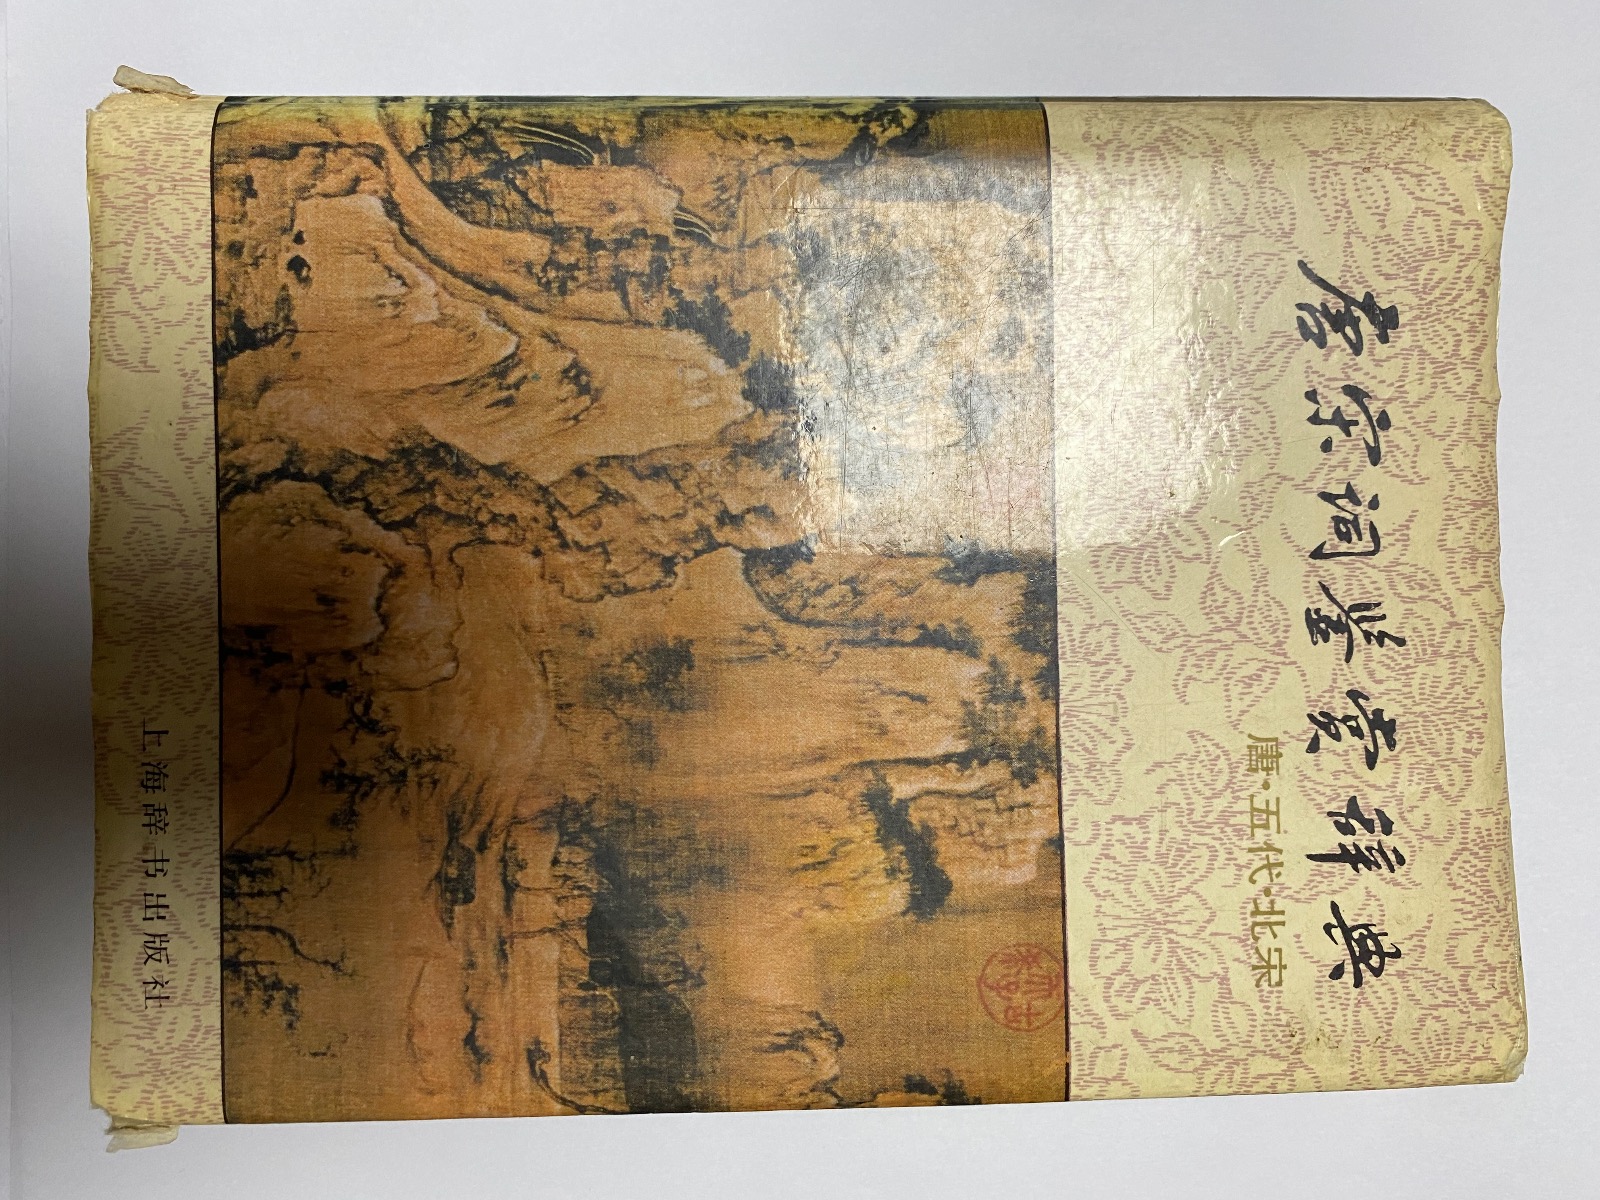 唐宋词鉴赏辞典
唐·五代·北宋
上海辞书出版社